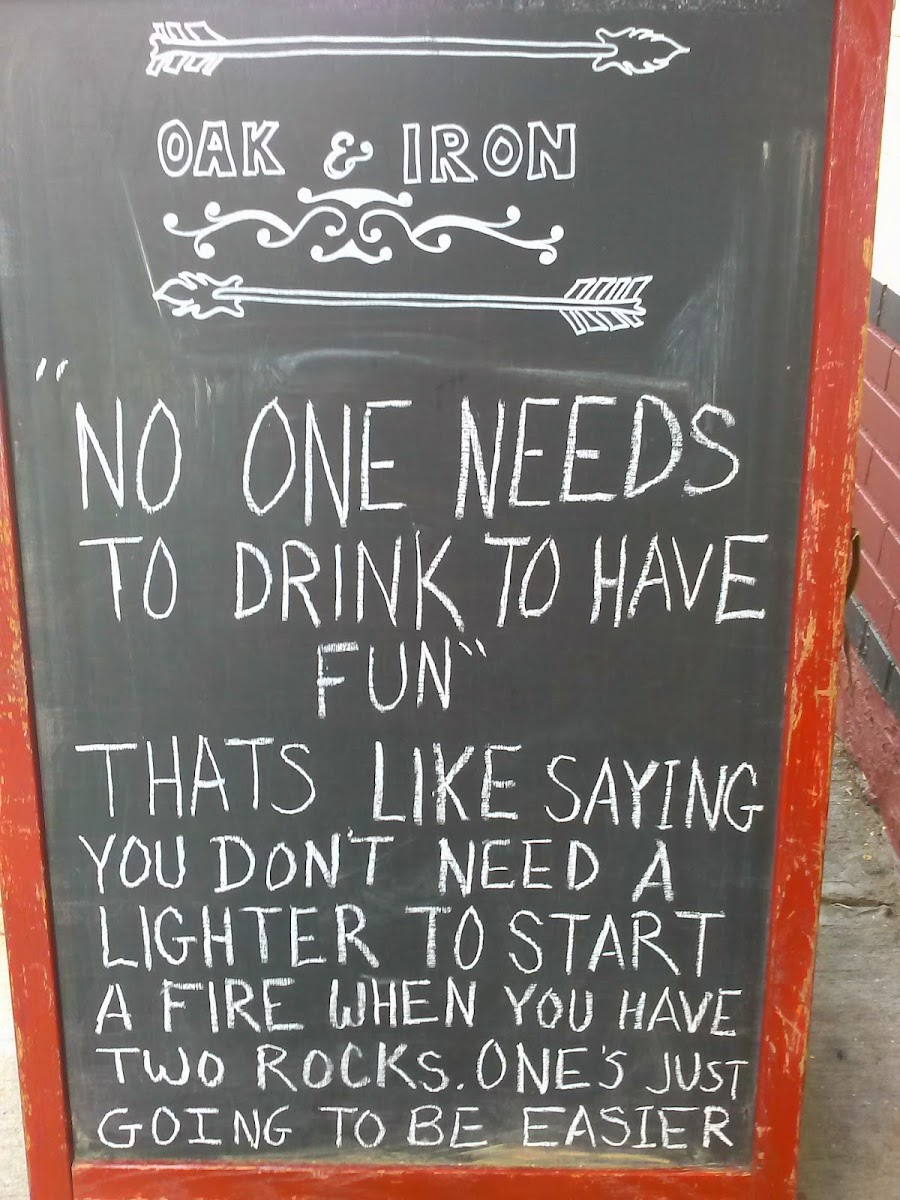 OAK & IRON
"NO ONE NEEDS
TO DRINK TO HAVE
FUN"
THATS LIKE SAYING
YOU DON'T NEED A
LIGHTER TO START
A FIRE WHEN YOU HAVE
TWO ROCKS. ONE'S JUST
GOING TO BE EASIER